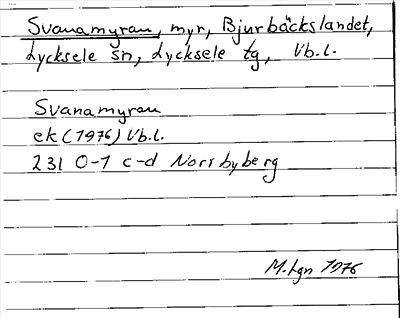 Svanamyran, myr, Bjurbäckslandet,
Lycksele sn, Lycksele tg, Vb.l.
Svanamyran
ek (1976) Vb.l.
231 0-1 c-d Norrbyberg
M.Lgn 1976